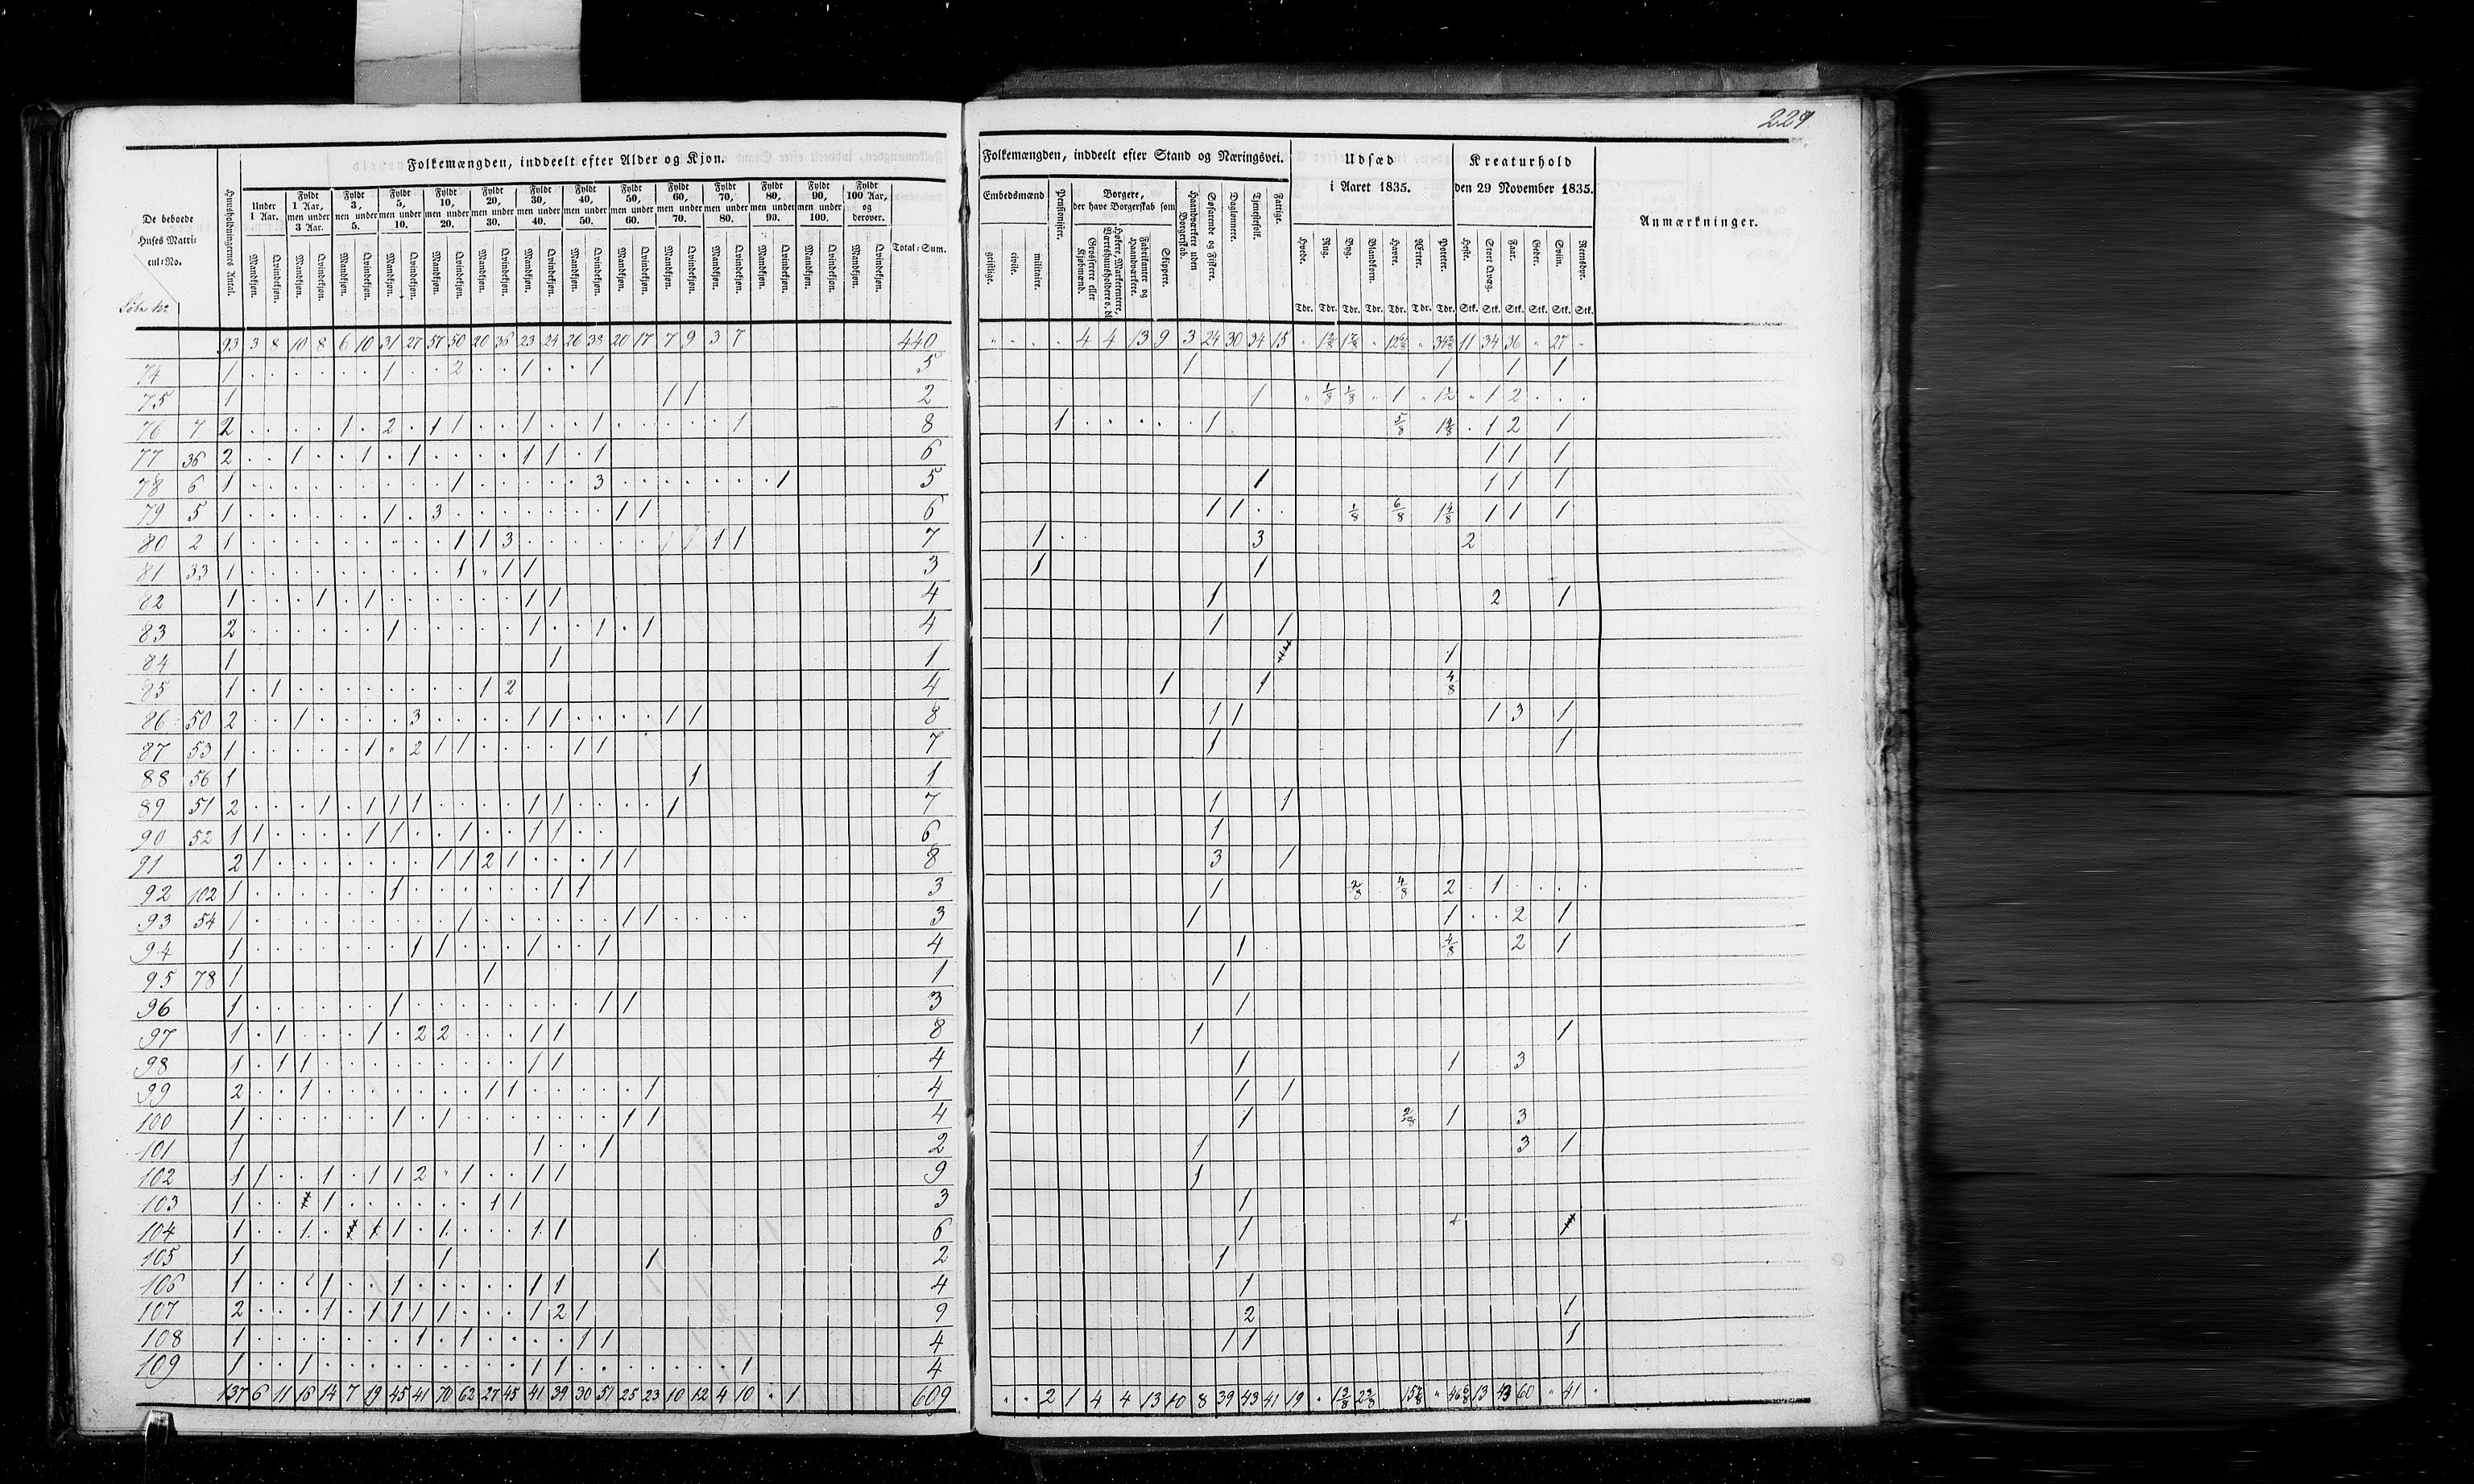 229
Folkemængden, inddeelt efter Alder og Kjøn.
De beboede Huses Matricul-No.
Løbe No
Huusholdningernes Antal.
Under 1 Aar.
Fyldt 1 Aar, men under 3 Aar.
Fyldt 3, men under 5.
Fyldt 5, men under 10.
Fyldt 10, men under 20.
Fyldt 20, men under 30.
Fyldt 30, men under 40.
Fyldt 40, men under 50.
Fyldt 50, men under 60.
Fyldt 60, men under 70.
Fyldt 70, men under 80.
Fyldt 80, men under 90.
Fyldt 90, men under 100.
Fyldt 100 Aar, og derover.
Mandkjøn. Qvindekjøn.
Total-Sum.
Folkemængden, inddeelt efter Stand og Næringsvei.
Embedsmænd
geistlige. civile. militaire.
Pensionister.
Borgere, der have Borgerskab som
Grosserere eller Kjøbmænd.
Høkere, Marketentere, Værtshuusholdere o. dl.
Fabrikanter og Haandværkere.
Skippere.
Haandværkere uden Borgerskab.
Søfarende og Fiskere.
Daglønnere.
Tjenestefolk.
Fattige.
Udsæd i Aaret 1835.
Hvede. Rug. Byg. Blandkorn. Havre. Ærter. Poteter.
Tdr. Tdr. Tdr. Tdr. Tdr. Tdr. Tdr.
Kreaturhold den 29 November 1835.
Heste. Stort Qvæg. Faar. Geder. Sviin. Rensdyr.
Stk. Stk. Stk. Stk. Stk. Stk.
Anmærkninger.
93 3 8 10 8 6 10 31 27 57 50 20 36 23 24 26 38 20 17 7 9 3 7 440 4 4 13 9 3 24 30 34 15 11 34 36 27
74 1 1 2 1 1 5 1 1 1 1
75 1 1 1 2 1 1/8 1/8 1 1 2
76 7 2 1 2 1 1 1 1 1 8 1 1 5/8 1 2 1
77 36 2 1 1 1 1 1 1 6 1 1 1
78 6 1 1 3 1 5 1 1 1 1
79 5 1 1 3 1 1 6 1 1 1/8 6/8 1 4/8 1 1 1
80 2 1 1 1 3 1 1 7 1 3 2
81 33 1 1 1 1 3 1 1
82 1 1 1 1 1 4 1 2 1
83 2 1 1 1 1 4 1 1
84 1 1 1 1
85 1 1 1 2 4 1 1 4/8
86 50 2 1 3 1 1 1 1 8 1 1 1 3 1
87 53 1 1 2 1 1 1 1 7 1 1
88 56 1 1 1
89 51 2 1 1 1 1 1 1 1 7 1 1
90 52 1 1 1 1 1 1 1 6 1
91 2 1 1 1 2 1 1 1 8 3 1
92 102 1 1 1 1 3 1 2/8 4/8 2 1
93 54 1 1 1 1 3 1 1 2 1
94 1 1 1 1 1 4 1 4/8 2 1
95 78 1 1 1 1
96 1 1 1 1 3 1
97 1 1 1 2 2 1 1 8 1 1
98 1 1 1 1 1 4 1 1 3
99 2 1 1 1 1 4 1 1
100 1 1 1 1 1 4 1 2/8 1 3
101 1 1 1 2 1 3 1
102 1 1 1 1 1 2 1 1 1 9 1
103 1 1 1 1 3 1
104 1 1 1 1 1 1 1 6 1
105 1 1 1 2 1
106 1 1 1 1 1 4 1
107 2 1 1 1 1 1 1 2 1 9 2 1
108 1 1 1 1 1 4 1 1 1
109 1 1 1 1 1 4
137 6 11 16 14 7 19 45 41 70 62 27 45 41 39 30 51 25 23 10 12 4 10 1 609 2 1 4 4 13 10 8 39 43 41 19 13 43 60 41